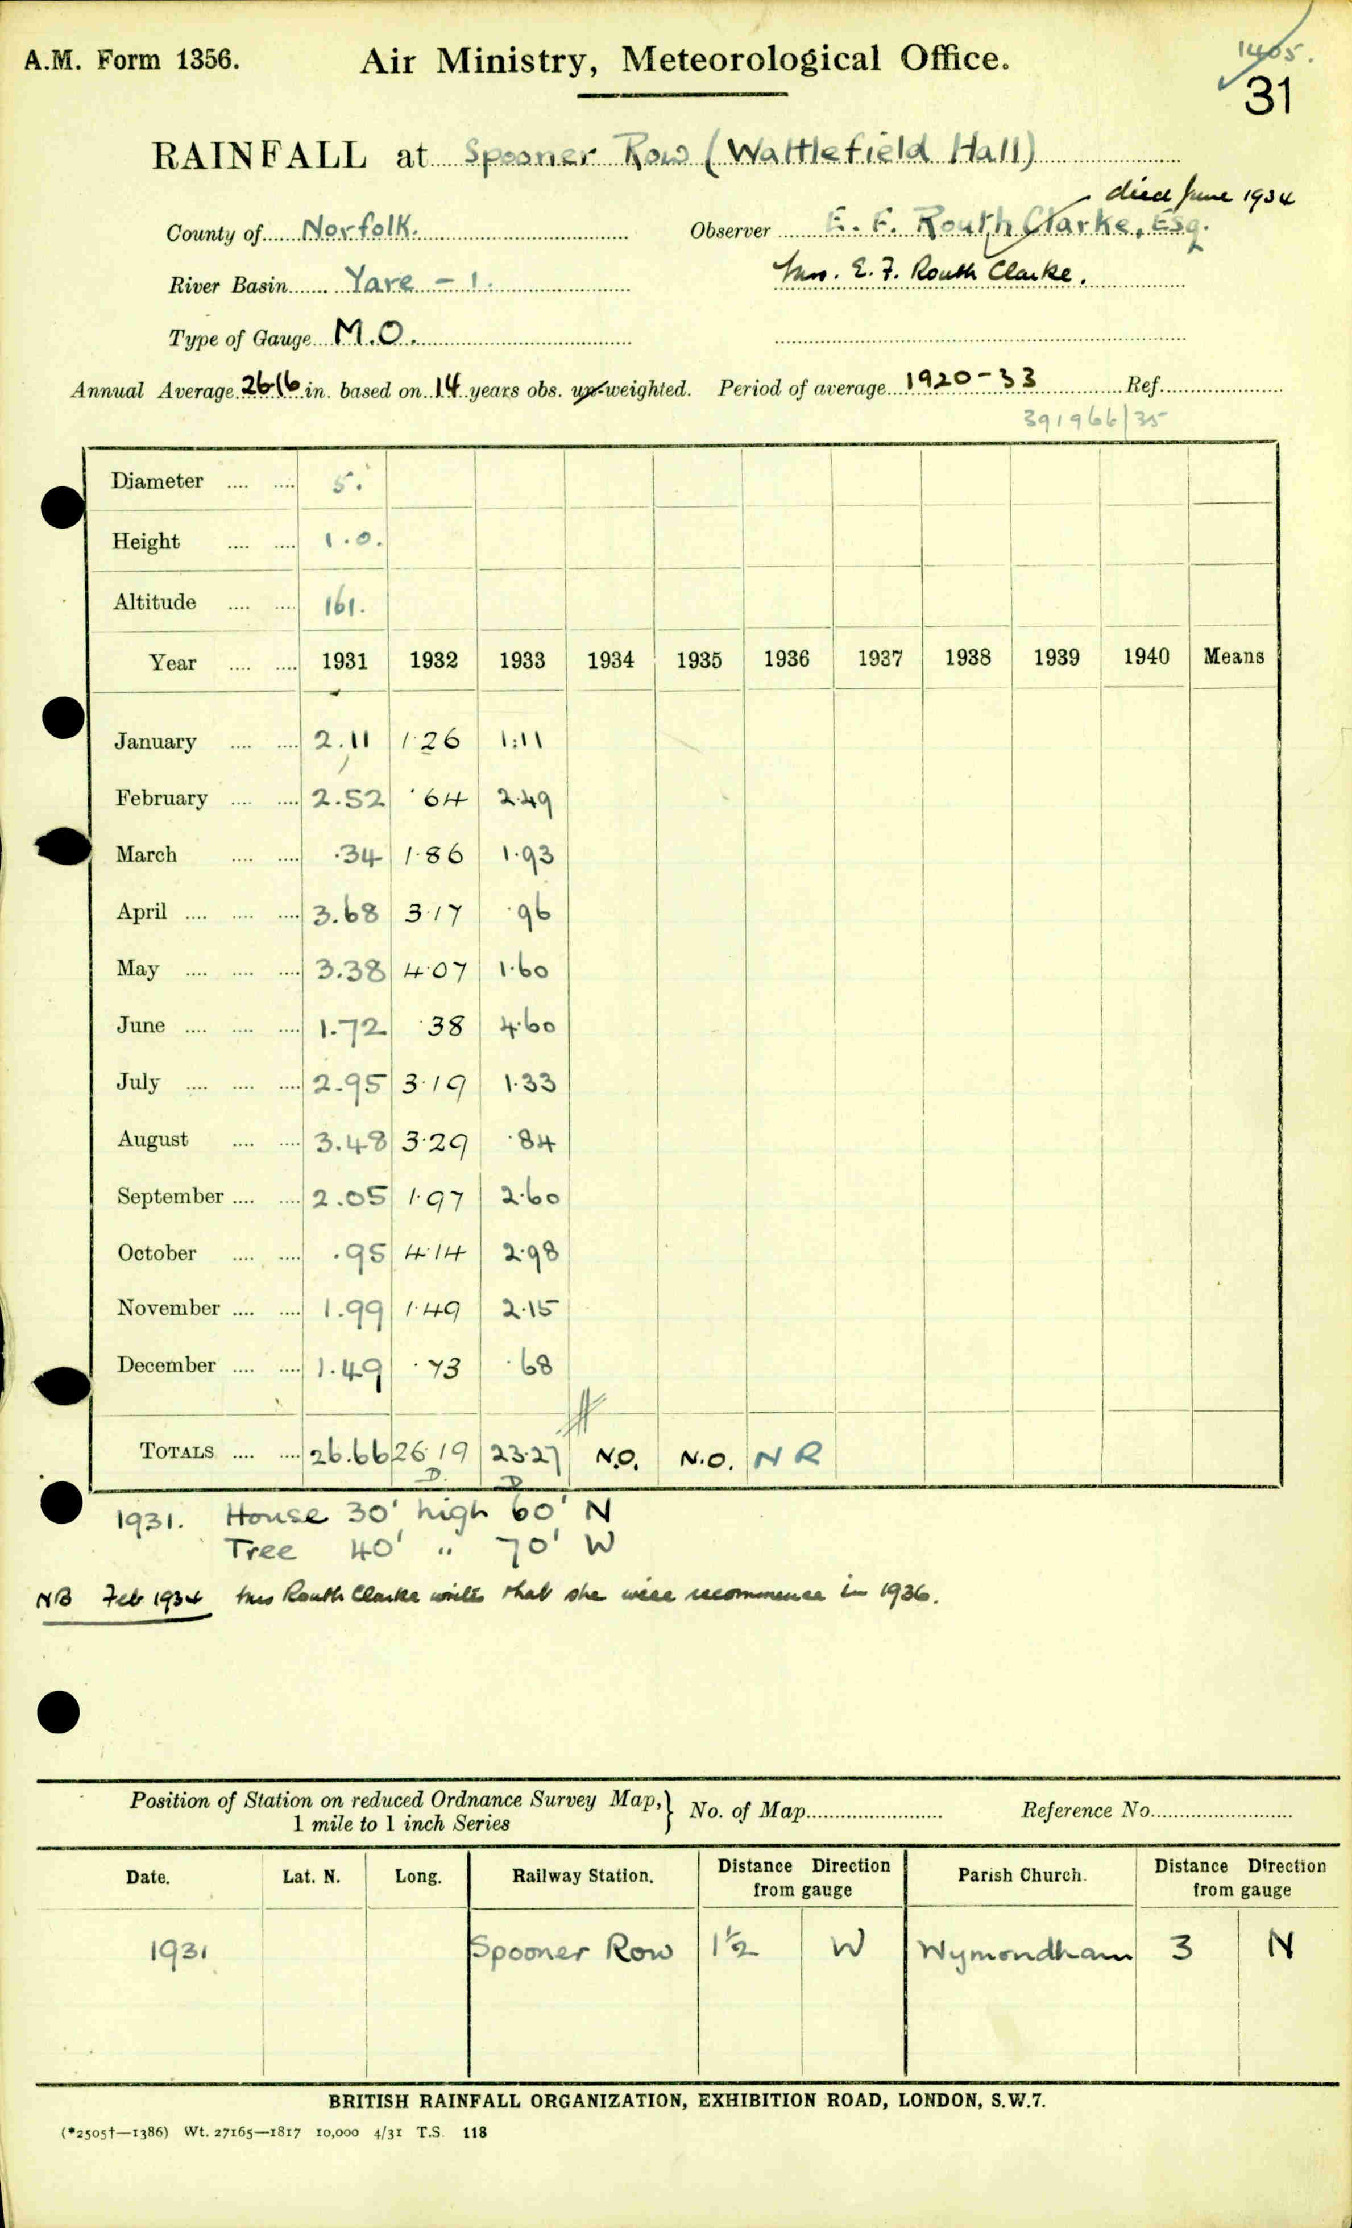 A.M. Form 1356.
Air Ministry, Meteorological Office.
1405.
31
RAINFALL at Spooner Row (Wattlefield Hall)
died June 1934
County of Norfolk.
Observer E. F. Routh Clarke, Esq.
River Basin Yare - 1.
Mrs. E. F. Routh Clarke.
Type of Gauge M.O.
Annual Average 26.16 in. based on 14 years obs. un-weighted. Period of average 1920-33 Ref.
391966/35
Diameter .... .... 5.
Height .... .... 1.0.
Altitude .... .... 161.
Year .... .... 1931 1932 1933 1934 1935 1936 1937 1938 1939 1940 Means
January .... .... 2.11 1.26 1.11
February .... .... 2.52 .64 2.49
March .... .... .34 1.86 1.93
April .... .... .... 3.68 3.17 .96
May .... .... .... 3.38 4.07 1.60
June .... .... .... 1.72 .38 4.60
July .... .... .... 2.95 3.19 1.33
August .... .... 3.48 3.29 .84
September .... .... 2.05 1.97 2.60
October .... .... .95 4.14 2.98
November .... .... 1.99 1.49 2.15
December .... .... 1.49 .73 .68
TOTALS .... .... 26.66 26.19 23.27 N.O. N.O. N R
D. D
1931. House 30' high 60' N
Tree 40' " 70' W
NB Feb 1934 Mrs Routh Clarke writes that she will recommence in 1936.
Position of Station on reduced Ordnance Survey Map, } No. of Map Reference No.
1 mile to 1 inch Series
Date. Lat. N. Long. Railway Station. Distance Direction from gauge Parish Church. Distance Direction from gauge
1931 Spooner Row 1½ W Wymondham 3 N
BRITISH RAINFALL ORGANIZATION, EXHIBITION ROAD, LONDON, S.W.7.
(*2505†—1386) Wt. 27165—1817 10,000 4/31 T.S. 118